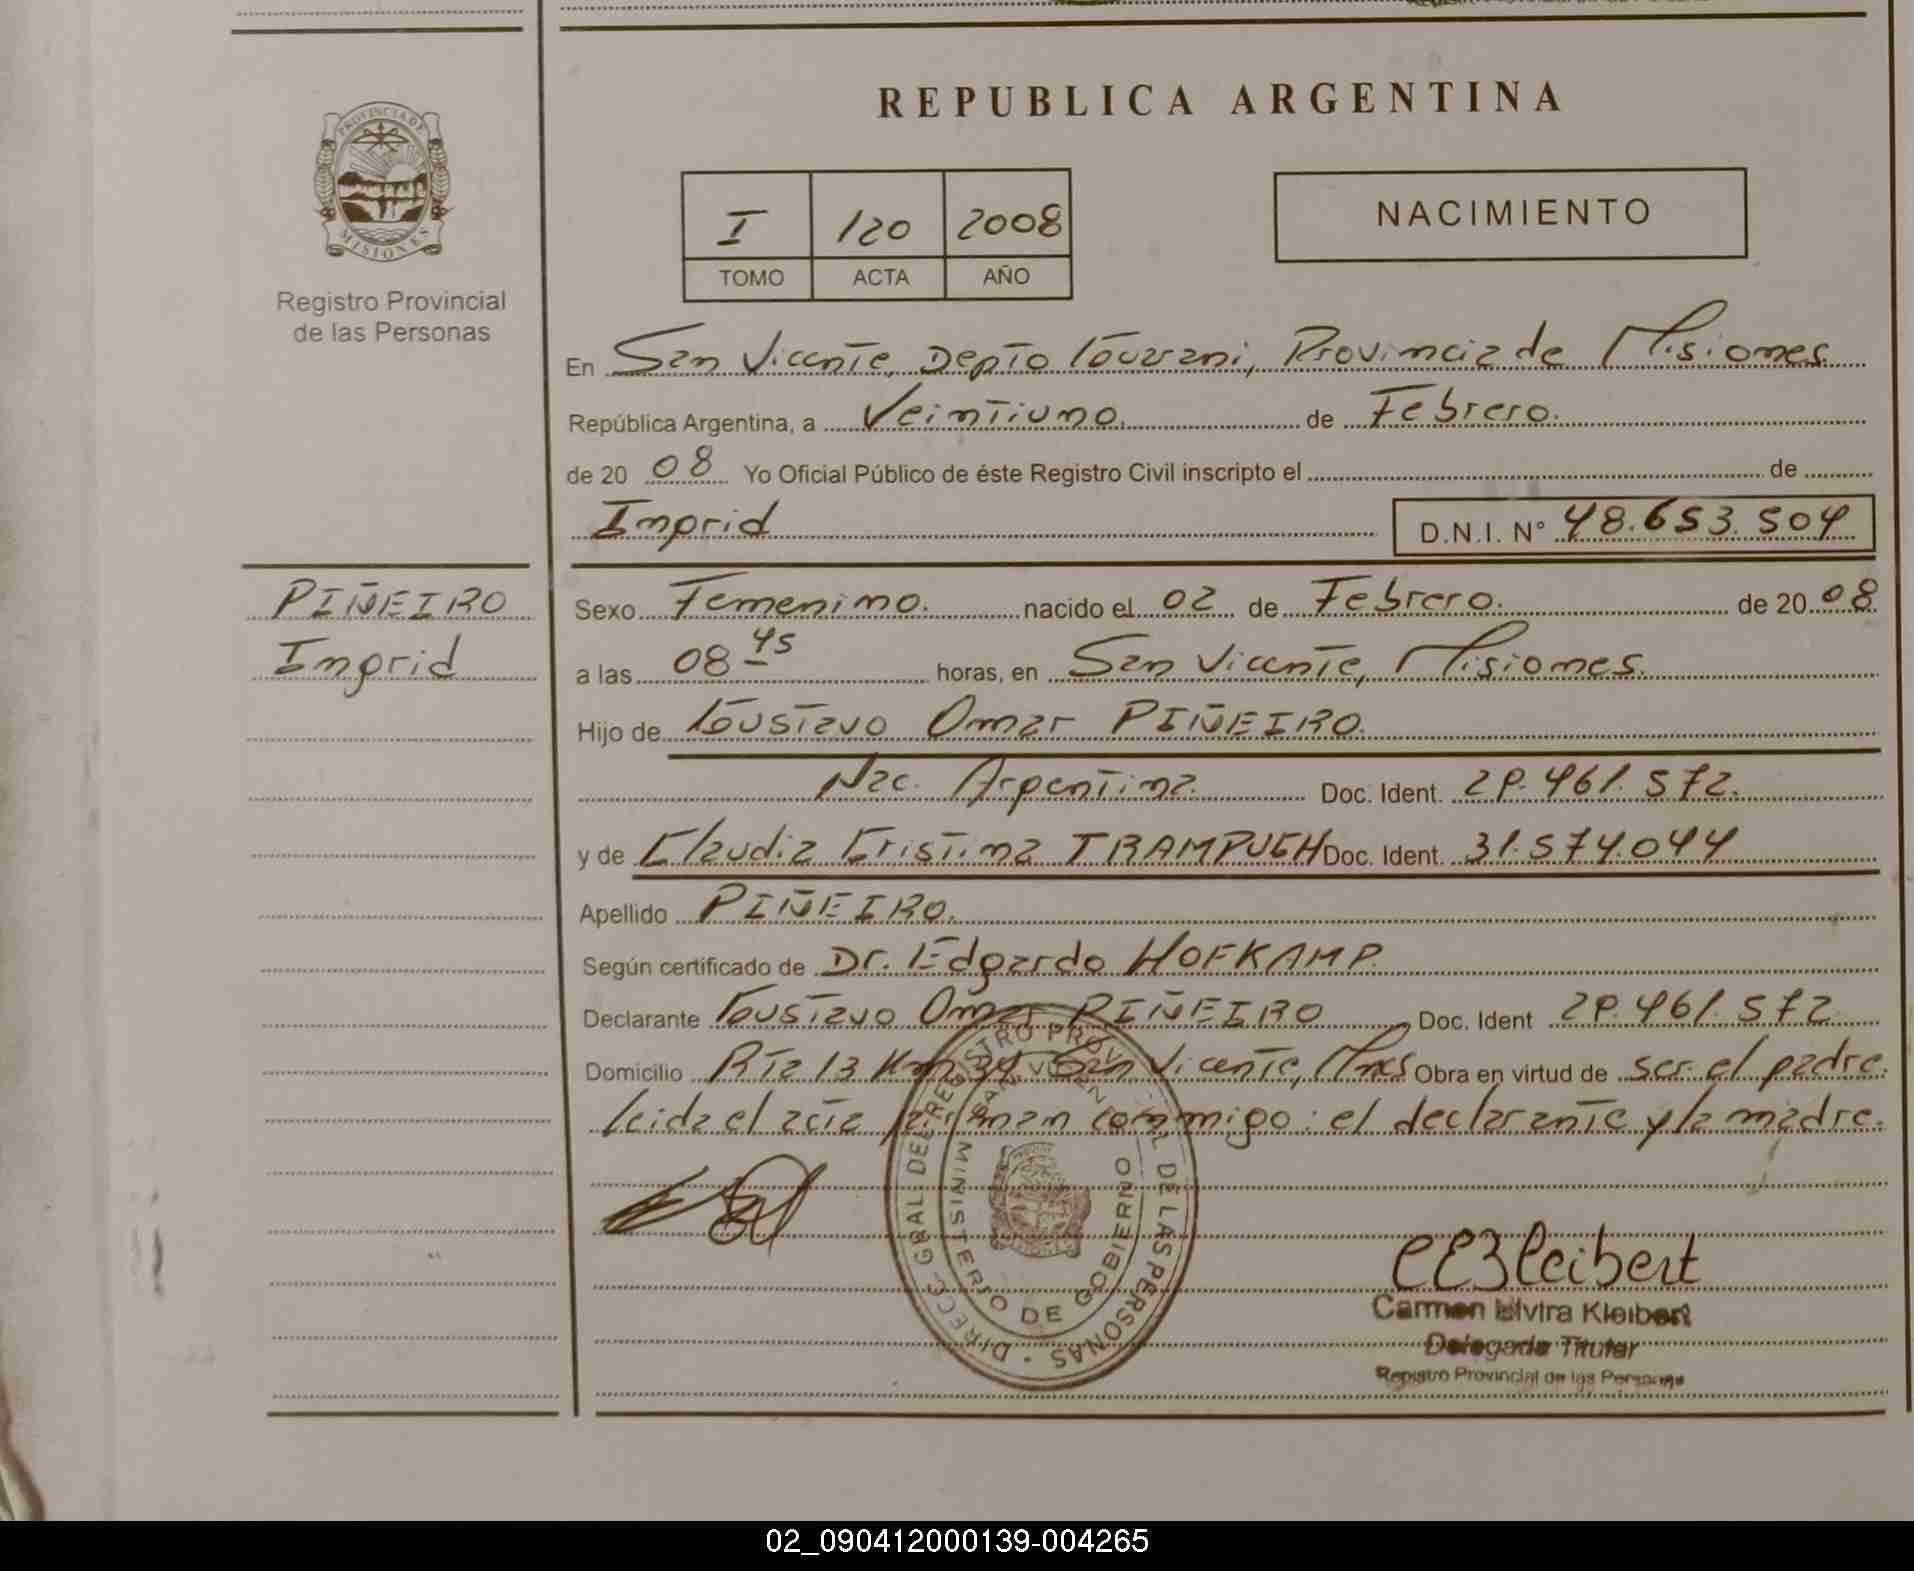 REPUBLICA ARGENTINA
PROVINCIA DE MISIONES
Registro Provincial
de las Personas
I 120 2008
TOMO ACTA AÑO
NACIMIENTO
En San Vicente, Depto Guarani, Provincia de Misiones
República Argentina, a Veintiuno. de Febrero.
de 20 08 Yo Oficial Público de éste Registro Civil inscripto el de
Ingrid D.N.I. N° 48.653.504
PIÑEIRO
Ingrid
Sexo Femenino. nacido el 02 de Febrero. de 20 08
a las 08 45 horas, en San Vicente, Misiones.
Hijo de Gustavo Omar PIÑEIRO.
Nac. Argentina. Doc. Ident. 29.461.572.
y de Claudia Cristina TRAMPUCH Doc. Ident. 31.574.044
Apellido PIÑEIRO.
Según certificado de Dr. Edgardo HOFKAMP.
Declarante Gustavo Omar PIÑEIRO Doc. Ident 29.461.572
Domicilio Rta 13 Km 34 San Vicente, Mnes Obra en virtud de ser el padre.
leida el acta firman conmigo: el declarante y la madre.
DIRECC. GRAL. DEL REGISTRO PROVINCIAL DE LAS PERSONAS
MINISTERIO DE GOBIERNO
SAN VICENTE
CEKleibert
Carmen Elvira Kleibert
Delegada Titular
Registro Provincial de las Personas
02_090412000139-004265